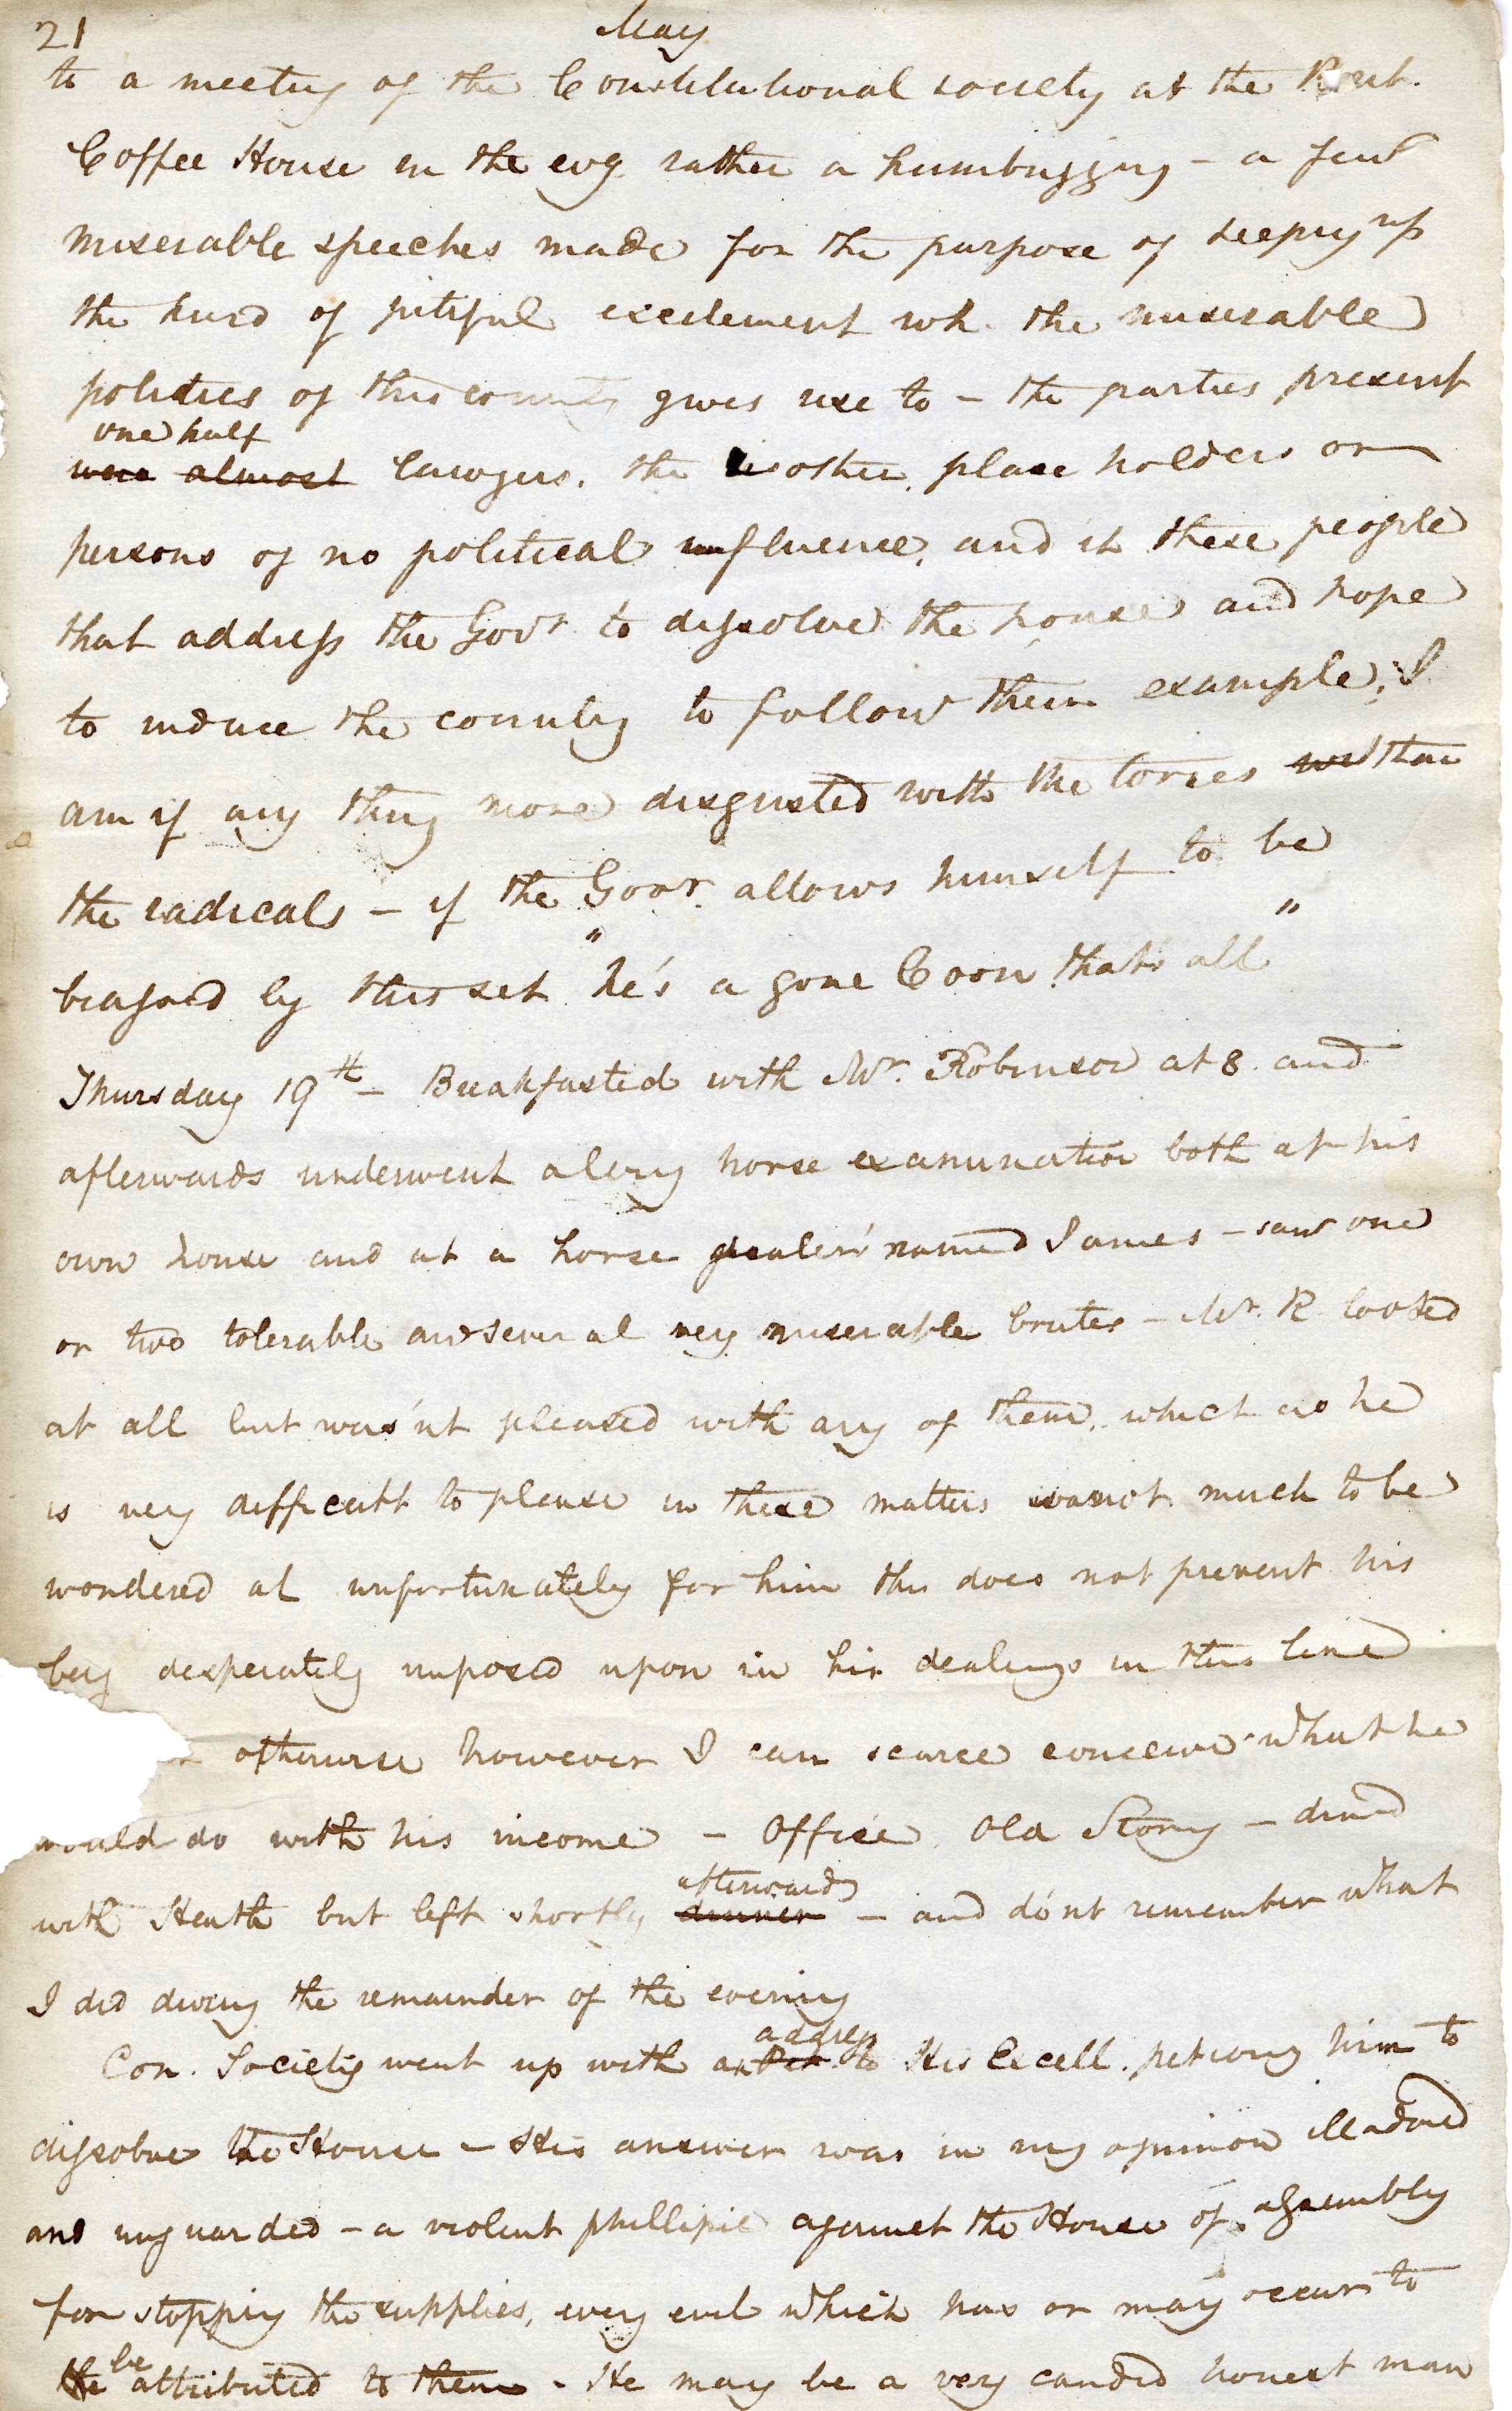 21 May
to a meeting of the Constitutional society at the
Coffee House in the evg rather a humbugging - a few
miserable speeches made for the purpose of keeping up
the kind of pitiful excitement wh. the miserable
politics of this country gives rise to - the parties present
one half
were almost lawyers. the other, place holders or
persons of no political influence, and it these people
that address the Govr to dissolve the house and hope
to induce the country to follow their example, I
am if any thing more disgusted with the tories than
the radicals - if the Govr. allows himself to be
by this set "he's a gone Coon that's all"
Thursday 19th - Breakfasted with Mr. Robinson at 8. and
afterwards underwent a long horse examination both at his
own house and at a horse dealers' named James - saw one
or two tolerable and several very miserable brutes - Mr. R looked
at all but was'nt pleased with any of them, which as he
is very difficult to please in these matters was not much to be
wondered at unfortunately for him this does not prevent his
being desperately imposed upon in his dealings in this line
otherwise however I can scarce conceive what he
would do with his income - Office, Old Story - dined
afterwards
with Heath but left shortly dinner - and do'nt remember what
I did during the remainder of the evening
address
Con. Society went up with an Pet to His Excell. petiong him to
dissolve the House - His answer was in my opinion ill advised
and unguarded - a violent phillipic against the House of assembly
for stopping the supplies, every evil which has or may occur to
be
the attributed to them - He may be a very candid honest man